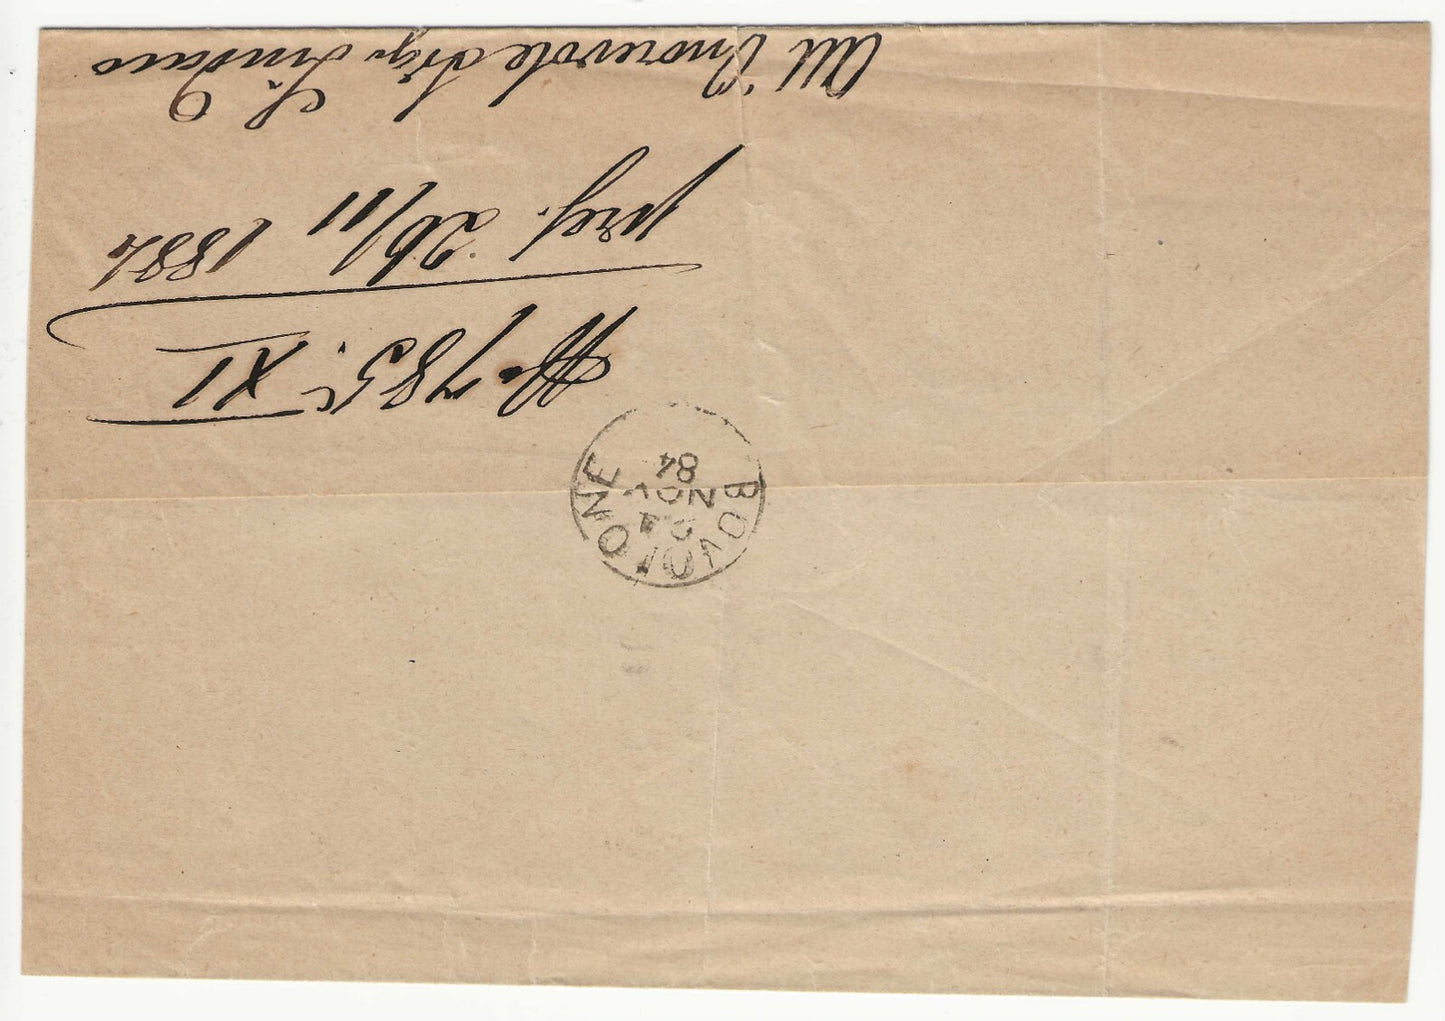 BOVOLONE
24
NOV
84
N. 785. XI
pres. 26/11 1884
All'Onorevole Sig. Sindaco